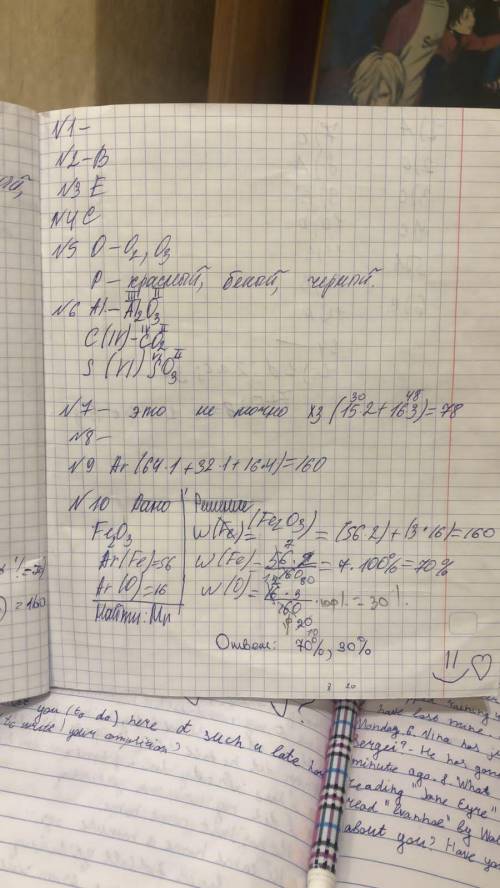 N1-
N2-B
N3 E
N4 C
N5 O-O₂, O₃
P-красный, белой, черной.
N6 Al-Al₂O₃
III II
C(IV)-CO₂
IV II
S (VI) SO₃
VI II
N7- это не точно х3 (15·2+16·3)=78
30 48
N8-
N9 Ar(64·1+32·1+16·4)=160
N10 Дано Решение
Fe₂O₃ W(Fe)(Fe₂O₃)=(56·2)+(3·16)=160
Ar(Fe)=56 W(Fe)= 56·2 = 7·100%=70%
160 80
Ar(O)=16 W(O)= 16·3 ·100%=30%
160
Найти: Mr
20
10
Ответ: 70%, 30%
11
)=160
you (to do) here at such a late
to write) your composition?
have lost mine
Monday. 6. Nina has
Sergei? - He has gone
minute ago. 8. What
reading "Jane Eyre"
read "Ivanhoe" by Wal
about you? Have you